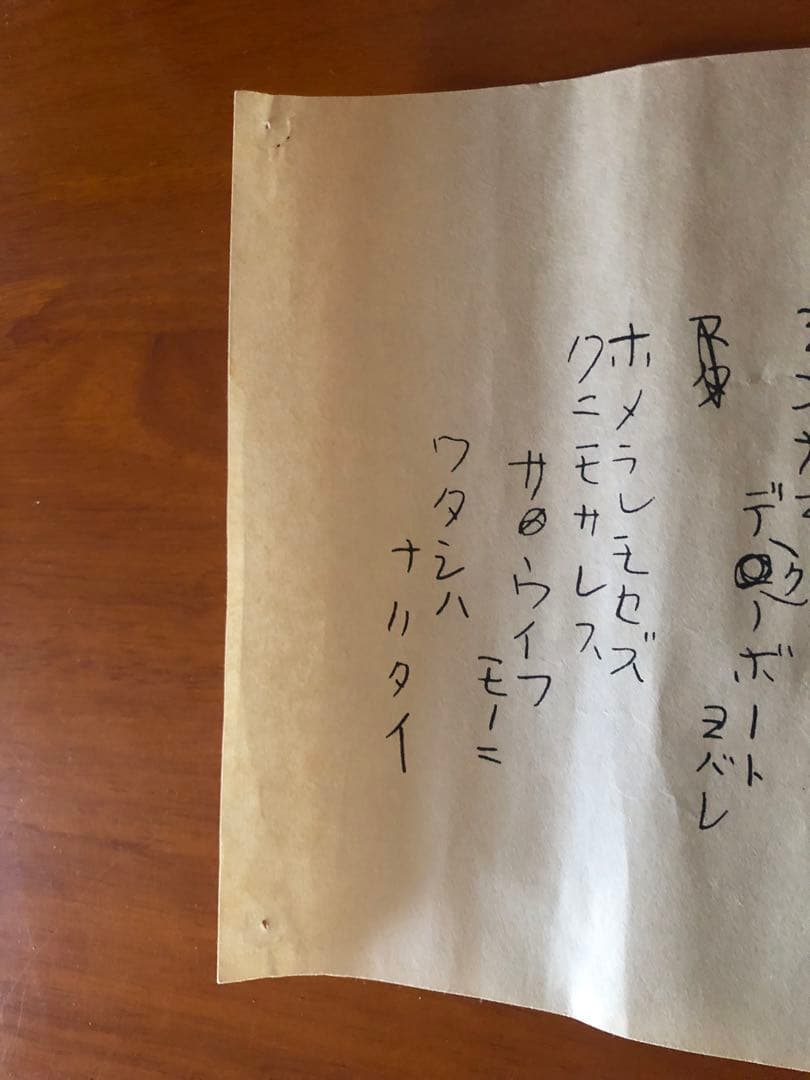 デクノボート
ヨバレ
ホメラレモセズ
クニモサレス
サウイフ
モノニ
ワタシハ
ナリタイ